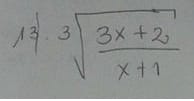 13. ³√((3x+2)/(x+1))